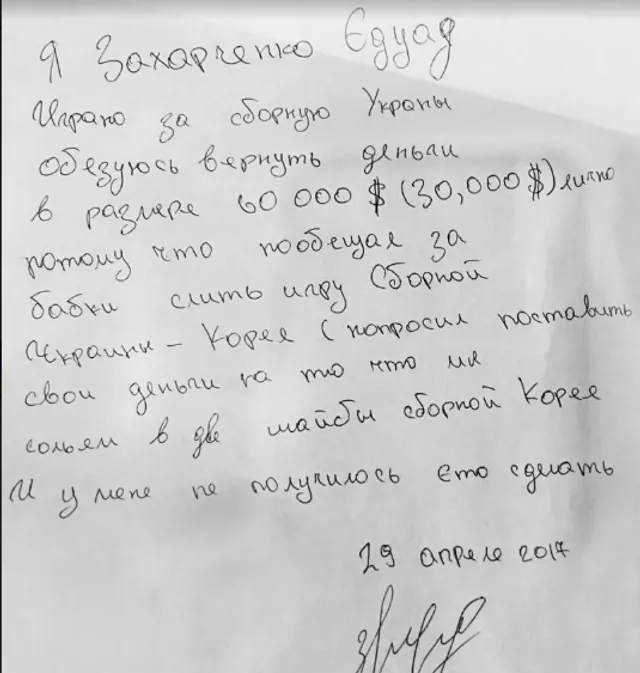 Я Захарченко Єдуад
Играю за сборную Украны
обезуюсь вернуть деньги
в размере 60 000 $ (30,000$) лично
потому что пообещал за
бабки слить игру Сборной
Украины – Корея (попросил поставить
свои деньги на то что ми
сольем в две шайбы сборной Корее
И у мене не получилось ето сделать
29 апреле 2017